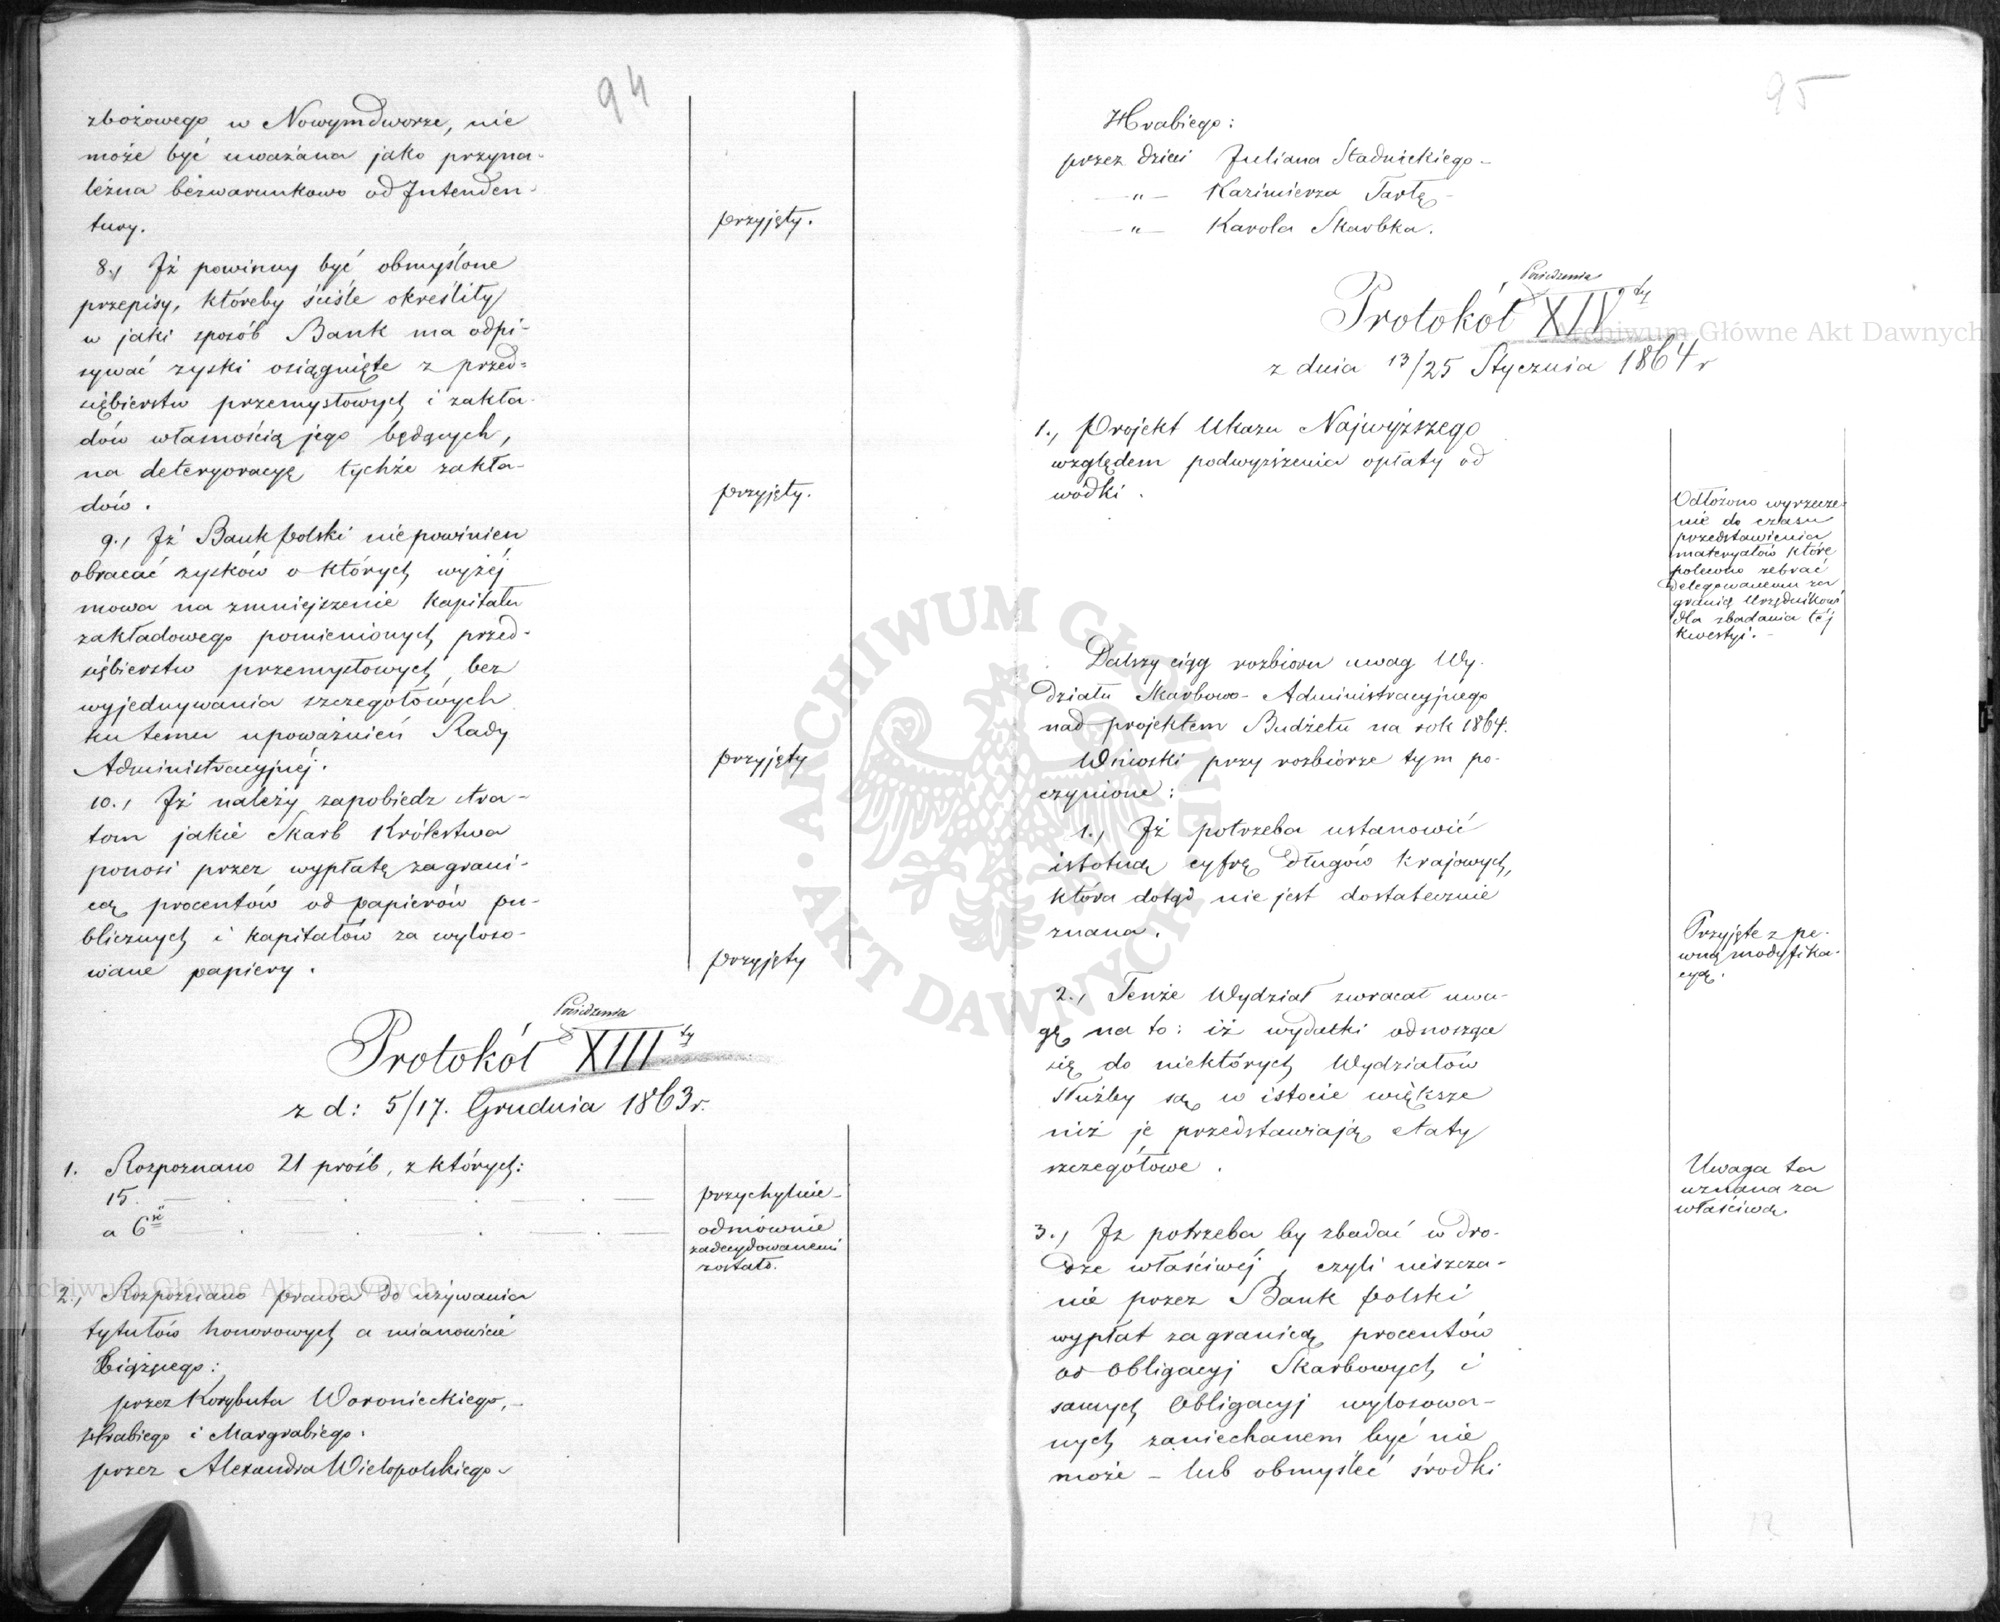 94
zbożowego w Nowymdworze, nie
może być uważana jako przyna-
leżna bezwarunkowo od Intenden-
tury.
przyjęty.
8., Iż powinny być obmyślone
przepisy, któreby ściśle określiły
w jaki sposób Bank ma odpi-
sywać zyski osiągnięte z przed-
siębierstw przemysłowych i zakła-
dów własnością jego będących,
na deteryoracyę tychże zakła-
dów.
przyjęty.
9., Iż Bank Polski nie powinien
obracać zysków o których wyżej
mowa na zmniejszenie Kapitału
zakładowego pomienionych przed-
siębierstw przemysłowych, bez
wyjednywania szczegółowych
ku temu upoważnień Rady
Administracyjnej.
przyjęty
10., Iż należy zapobiedz stra-
tom jakie Skarb Królestwa
ponosi przez wypłatę zagrani-
cą procentów od papierów pu-
blicznych i kapitałów za wyloso-
wane papiery.
przyjęty
Posiedzenia
Protokół XIIIty
z d: 5/17. Grudnia 1863 r.
1. Rozpoznano 21 prośb, z których:
15. przychylnie-
a 6ść odmównie
zadecydowanemi
zostało.
2., Rozpoznano prawa do używania
tytułów honorowych a mianowicie
Książęcego:
przez Korybuta Woronieckiego,-
Hrabiego i Margrabiego.
przez Alexandra Wielopolskiego-
95
Hrabiego:
przez dzieci Juliana Stadnickiego-
-"- Kazimierza Tarłę-
-"- Karola Skarbka.
Posiedzenia
Protokół XIVty
z dnia 13/25 Stycznia 1864 r
1., Projekt Ukazu Najwyższego
względem podwyższenia opłaty od
wódki.
Odłożono wyrzecze-
nie do czasu
przedstawienia
materyałów które
polecono zebrać
delegowanemu za
granicę Urzędnikowi
dla zbadania tej
kwestyi.-
Dalszy ciąg rozbioru uwag Wy-
działu Skarbowo-Administracyjnego
nad projektem Budżetu na rok 1864.
Wnioski przy rozbiorze tym po-
czynione:
1., Iż potrzeba ustanowić
istotną cyfrę długów krajowych,
która dotąd nie jest dostatecznie
znana.
Przyjęte z pe-
wną modyfika-
cyą.
2., Tenże Wydział zwracał uwa-
gę na to: iż wydatki odnoszące
się do niektórych Wydziałów
Służby są w istocie większe
niż je przedstawiają etaty
szczegółowe.
Uwaga ta
uznana za
właściwą.
3., Iż potrzeba by zbadać w dro-
dze właściwej, czyli uiszcza-
nie przez Bank Polski
wypłat zagranicą procentów
od Obligacyj Skarbowych i
samych Obligacyj wylosowa-
nych zaniechanem być nie
może - lub obmyśleć środki
Archiwum Główne Akt Dawnych
Archiwum Główne Akt Dawnych
ARCHIWUM GŁÓWNE AKT DAWNYCH